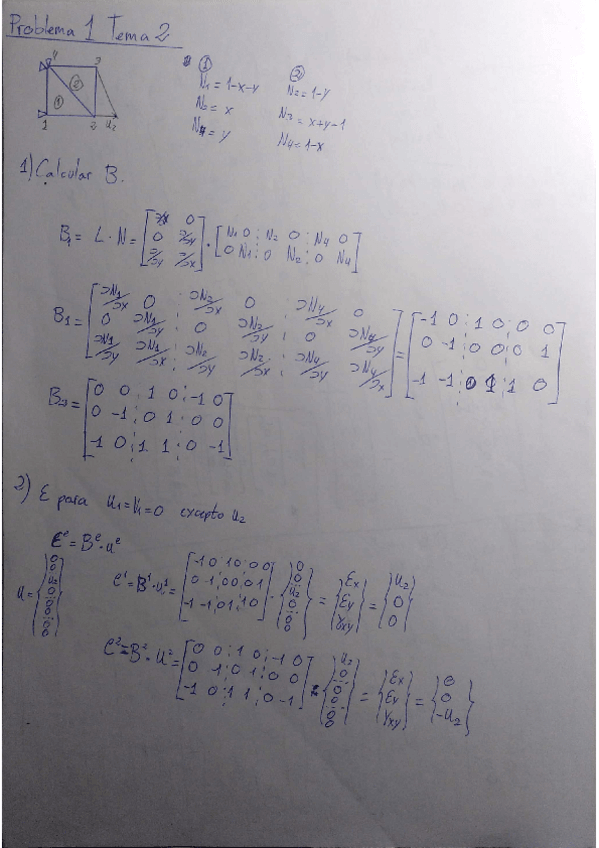 Problema 1 Tema 2
4 3
②
①
1 2 u₂
① ②
N₁ = 1-x-y N₂ = 1-y
N₂ = x N₃ = x+y-1
N4 = y N4 = 1-x
1) Calcular B.
B₁ = L · N = [∂/∂x 0; 0 ∂/∂y; ∂/∂y ∂/∂x] · [N₁ 0 N₂ 0 N4 0; 0 N₁ 0 N₂ 0 N4]
B₁ = [∂N₁/∂x 0 ∂N₂/∂x 0 ∂N4/∂x 0; 0 ∂N₁/∂y 0 ∂N₂/∂y 0 ∂N4/∂y; ∂N₁/∂y ∂N₁/∂x ∂N₂/∂y ∂N₂/∂x ∂N4/∂y ∂N4/∂x] = [-1 0 1 0 0 0; 0 -1 0 0 0 1; -1 -1 0 1 1 0]
B₂ = [0 0 1 0 -1 0; 0 -1 0 1 0 0; -1 0 1 1 0 -1]
2) ε para u₁=v₁=0 excepto u₂
εᵉ = Bᵉ · uᵉ
u = {0 0 u₂ 0 0 0 0 0}
ε¹ = B¹ · u¹ = [-1 0 1 0 0 0; 0 -1 0 0 0 1; -1 -1 0 1 1 0] · {0 0 u₂ 0 0 0} = {εx εy γxy} = {u₂ 0 0}
ε² = B² · u² = [0 0 1 0 -1 0; 0 -1 0 1 0 0; -1 0 1 1 0 -1] · {u₂ 0 0 0 0 0} = {εx εy γxy} = {0 0 -u₂}